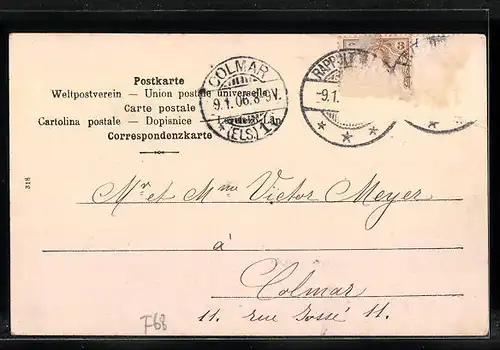 Postkarte
Weltpostverein — Union postale universelle
Carte postale
Cartolina postale — Dopisnice
Correspondenzkarte
COLMAR
9.1.06.8-9V.
* (ELS.) 1
RAPP
-9.1.
* * *
3
318
Mr et Mme Victor Meyer
à
Colmar
11. rue Gossé 11.
F68